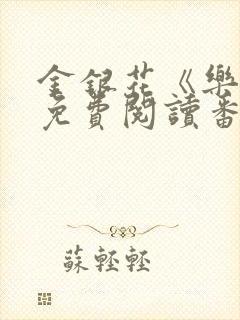 金銀花《樂
免費閱讀番
蘇輕輕